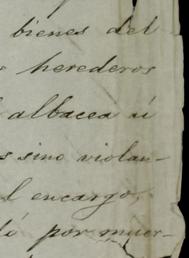 bienes del
herederos
albacea ú
s sino violan-
l encargo,
ló por muer-